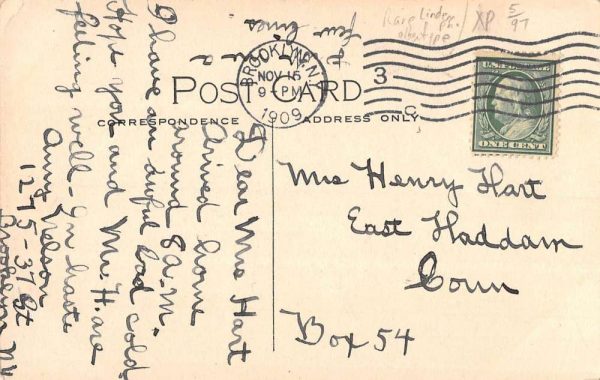 XP 5/97
few lines
BROOKLYN, N.Y.
NOV 15
9-PM
1909
3
C
U.S. POSTAGE
ONE CENT
POST CARD
CORRESPONDENCE
ADDRESS ONLY
Dear Mrs Hart
Arrived home
around 8 a.m.
I have an awful bad cold
Hope you and Mr. H. are
feeling well - In haste
Nelson
1275-37 St
Brooklyn NY
Mrs Henry Hart
East Haddam
Conn
Box 54